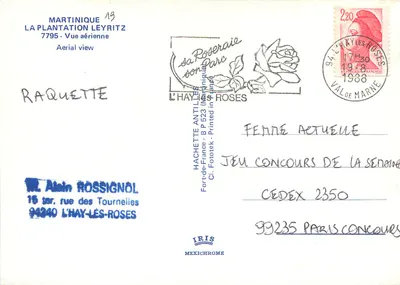 MARTINIQUE
LA PLANTATION LEYRITZ
7795 - Vue aérienne
Aerial view
19
sa Roseraie
son Parc
L'HAY-les-ROSES
2,20
94 L'HAY-LES-ROSES
1988
VAL DE MARNE
RAQUETTE
HACHETTE ANTILLES
Fort-de-France - B P 523 (Martinique)
Cl. Fototek - Printed in
FEMME ACTUELLE
JEU CONCOURS DE LA SEMAINE
CEDEX 2350
99235 PARIS CONCOURS
M. Alain ROSSIGNOL
15 ter. rue des Tournelles
94240 L'HAY-LES-ROSES
IRIS
MEXICHROME